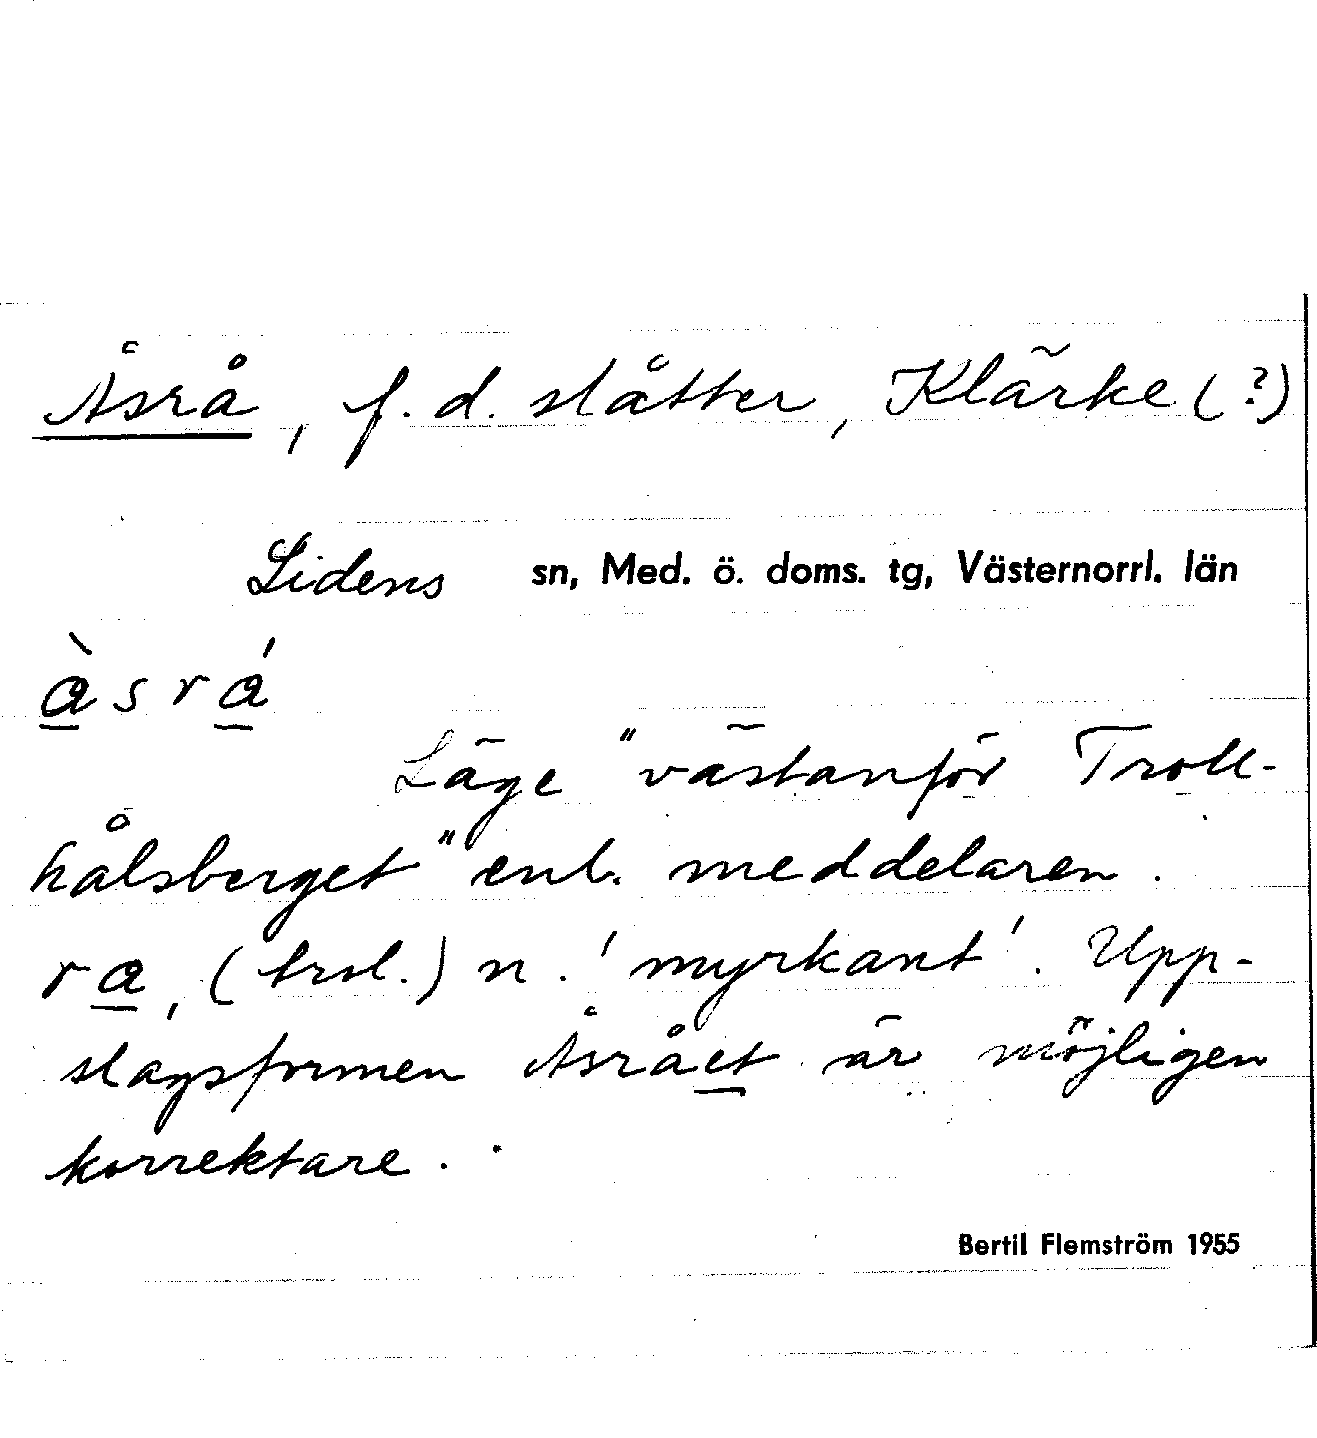 Åsrå, f.d. slåtter, Klärke (?)
Lidens sn, Med. ö. doms. tg, Västernorrl. län
à̲ s r á̲
Läge "västanför Troll-
hålsberget" enl. meddelaren.
r a̲, (trol.) n. 'myrkant'. Upp-
slagsformen Åsråe̲t̲ är möjligen
korrektare.
Bertil Flemström 1955